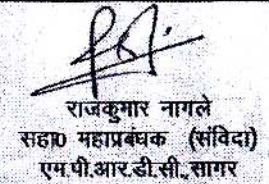 राजकुमार नागले
सहा0 महाप्रबंधक (संविदा)
एम.पी.आर.डी.सी.,सागर